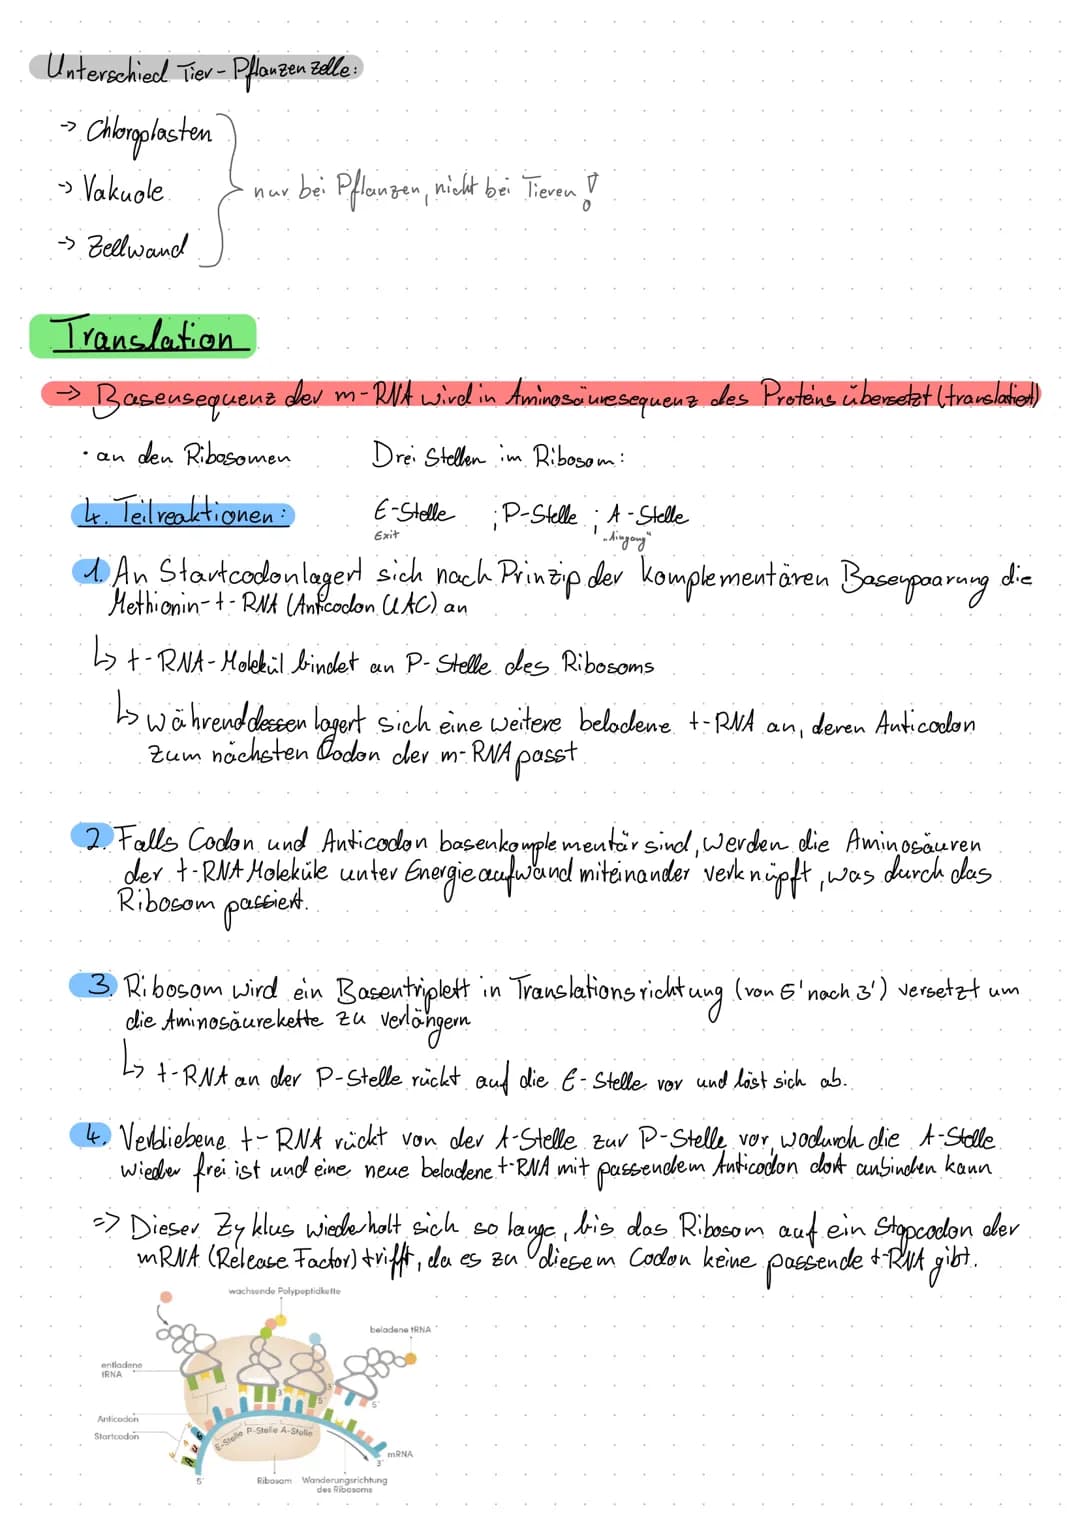 Unterschied Tier-Pflanzen Zelle:
-> Chloroplasten
-> Vakuole
nur bei Pflanzen, nicht bei Tieren!
-> Zellwand
Translation
-> Basensequenz der m-RNA wird in Aminosäuresequenz des Proteins übersetzt (translatiert)
· an den Ribosomen Drei Stellen im Ribosom:
4. Teilreaktionen: E-Stelle ; P-Stelle ; A-Stelle
Exit "Eingang"
1. An Startcodon lagert sich nach Prinzip der komplementären Basenpaarung die
Methionin-t-RNA (Anticodon UAC) an
↳ t-RNA-Molekül bindet an P-Stelle des Ribosoms
↳ währenddessen lagert sich eine weitere beladene t-RNA an, deren Anticodon
zum nächsten Codon der m-RNA passt
2. Falls Codon und Anticodon basenkomplementär sind, werden die Aminosäuren
der t-RNA Moleküle unter Energieaufwand miteinander verknüpft, was durch das
Ribosom passiert.
3. Ribosom wird ein Basentriplett in Translationsrichtung (von 5' nach 3') versetzt um
die Aminosäurekette zu verlängern
↳ t-RNA an der P-Stelle rückt auf die E-Stelle vor und löst sich ab.
4. Verbliebene t-RNA rückt von der A-Stelle zur P-Stelle vor, wodurch die A-Stelle
wieder frei ist und eine neue beladene t-RNA mit passendem Anticodon dort anbinden kann
=> Dieser Zyklus wiederholt sich so lange, bis das Ribosom auf ein Stopcodon der
mRNA (Release Factor) trifft, da es zu diesem Codon keine passende t-RNA gibt.
wachsende Polypeptidkette
beladene tRNA
entladene
tRNA
Anticodon
Startcodon
E-Stelle P-Stelle A-Stelle
mRNA
5' 3'
Ribosom Wanderungsrichtung
des Ribosoms